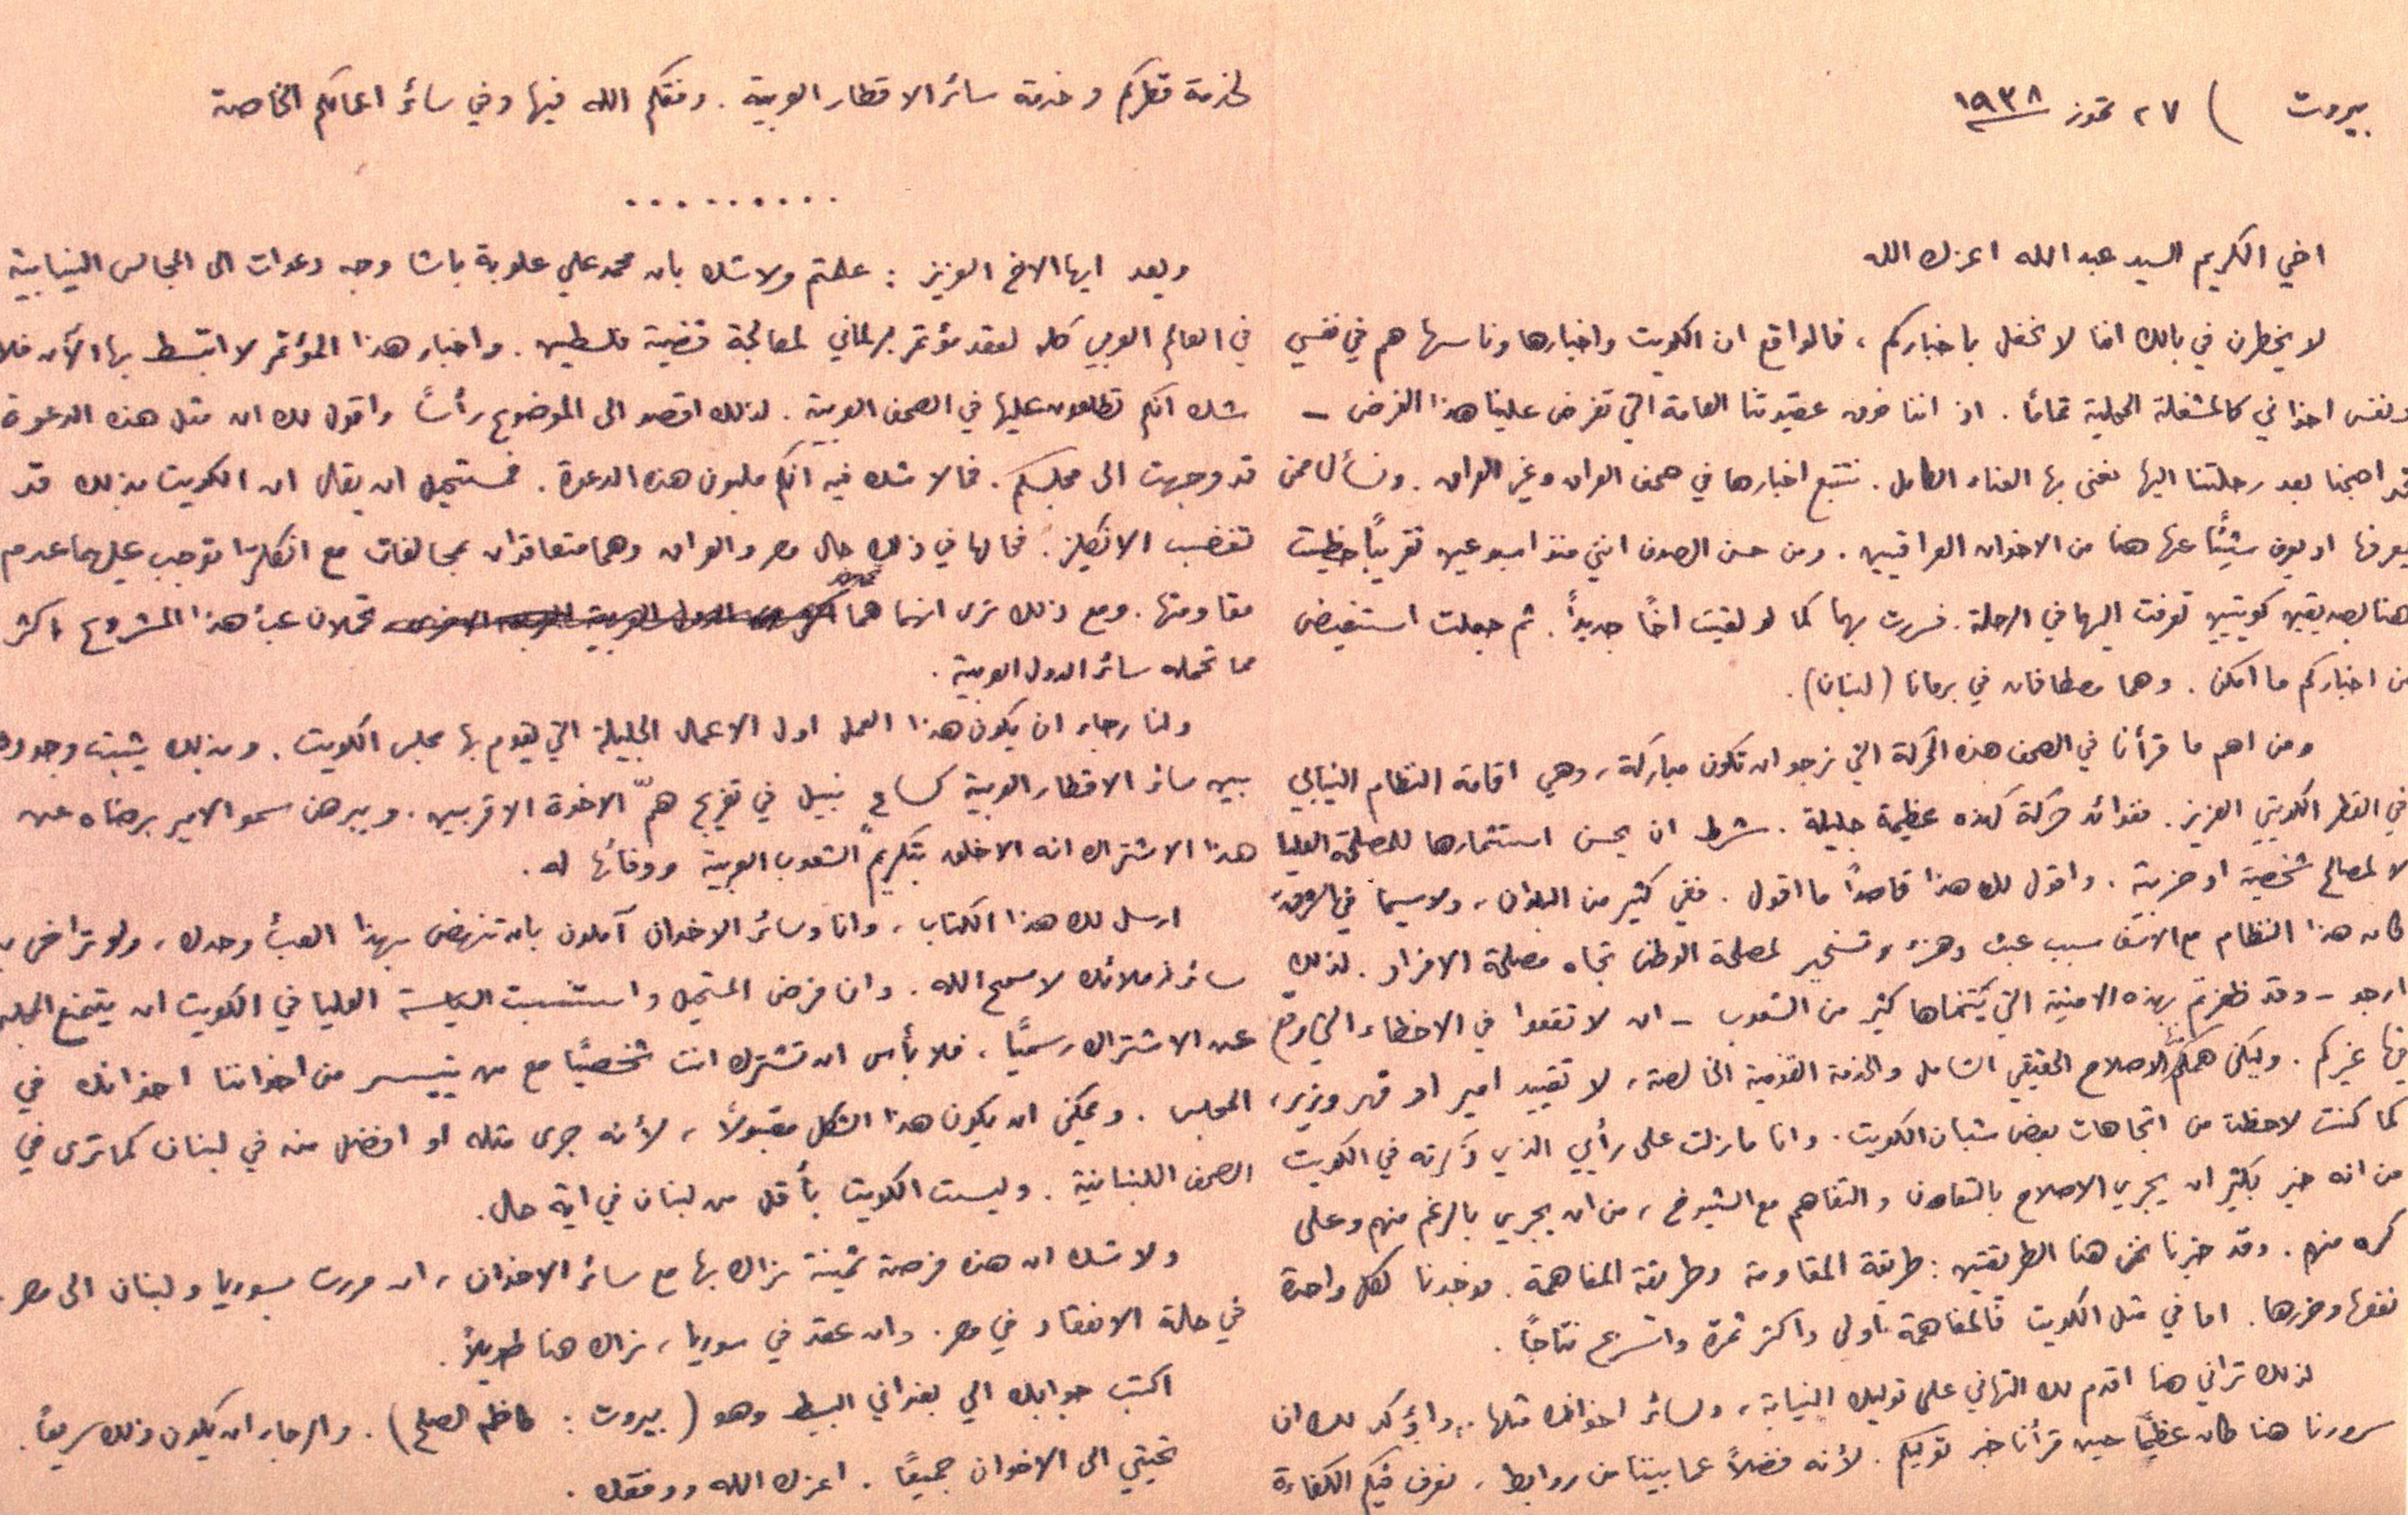 بيروت ) ٢٧ تموز ١٩٣٨
اخي الكريم السيد عبد الله اعزك الله
لا يخطرن في بالك اننا لا نحفل باخباركم ، فالواقع ان الكويت واخبارها وناسها هم في نفسي
ونفس اخواني كالمشغلة المحلية تمامًا . اذ اننا فوق عقيدتنا العامة التي تفرض علينا هذا الفرض –
قد اصبحنا بعد رحلتنا اليها نعنى بها العناء الكامل . نتتبع اخبارها في صحف العراق وغير العراق . ونسأل ممن
يعرفها او يعرف شيئًا عنها هنا من الاخوان العراقيين . ومن حسن الصدف انني منذ اسبوعين تقريبًا حظيت
هنا بصديقين كويتيين تعرفت اليهما في الرحلة . فسررت بهما كما لو لقيت اخًا جديدًا . ثم جعلت استفيض
من اخباركم ما امكن . وهما مصطافان في برمانا (لبنان) .
ومن اهم ما قرأنا في الصحف هذه الحركة التي نرجو ان تكون مباركة ، وهي اقامة النظام النيابي
في القطر الكويتي العزيز . ففوائد حركة كهذه عظيمة جليلة . شرط ان يحسن استثمارها للمصلحة العليا
لا لمصالح شخصية او حزبية . واقول لك هذا قاصدًا ما اقول . ففي كثير من البلدان ، ولا سيما في الشرق ،
كان هذا النظام مع الاسف سبب عبث وهزء وتسخير لمصلحة الوطن تجاه مصلحة الافراد . لذلك
ارجو – وقد ظفرتم بهذه الامنية التي يتمناها كثير من الشعوب – ان لا تقعوا في الاخطاء التي وقع
فيها غيركم . وليكن همكم الاصلاح الحقيقي الشامل والخدمة القومية الخالصة ، لا تقييد امير او قهر وزير ،
كما كنت لاحظت من اتجاهات بعض شبان الكويت . وانا ما زلت على رأيي الذي ذكرته في الكويت
من انه خير بكثير ان يجري الاصلاح بالتعاون والتفاهم مع الشيوخ ، من ان يجري بالرغم منهم وعلى
كره منهم . وقد خبرنا نحن هنا الطريقتين : طريقة المقاومة وطريقة المفاهمة . فوجدنا لكل واحدة
نفعها وضررها . اما في مثل الكويت فالمفاهمة اولى واكثر ثمرة واسرع نتاجًا .
لذلك تراني هنا اقدم لك التهاني على توليك النيابة ، ولسائر اخوانك مثلها . واؤكد لك ان
سرورنا هنا كان عظيمًا حين قرأنا خبر توليكم . لأنه فضلاً عما بيننا من روابط ، نعرف فيكم الكفاءة
لخدمة قطركم وخدمة سائر الاقطار العربية . وفقكم الله فيها وفي سائر اعمالكم الخاصة
. . . . . . . . .
وبعد ايها الاخ العزيز : علمتم ولا شك بان محمد علي علوبة باشا وجه دعوات الى المجالس النيابية
في العالم العربي كله لعقد مؤتمر برلماني لمعالجة قضية فلسطين . واخبار هذا المؤتمر لا ابتسط بها الآن فلا
شك انكم تطلعون عليها في الصحف العربية . لذلك اقصد الى الموضوع رأسًا واقول لك ان مثل هذه الدعوة
قد وجهت الى مجلسكم . فمما لا شك فيه انكم ملبون هذه الدعوة . فمستحيل ان يقال ان الكويت بذلك قد
تغضب الانكليز . فحالها في ذلك حال مصر والعراق وهما متعاقدان بمحالفات مع انكلترا توجب عليهما عدم
مقاومتها . ومع ذلك ترى انهما هما تحملان عبء هذا المشروع اكثر
مما تحمله سائر الدول العربية .
ولنا رجاء ان يكون هذا العمل اول الاعمال الجليلة التي يقوم بها مجلس الكويت . وبذلك يثبت وجوده
بين سائر الاقطار العربية كساع نبيل في تفريج همّ الاخوة الاقربين . ويبرهن سمو الامير برضاه عن
هذا الاشتراك انه الاخلق بتكريم الشعوب العربية ووفائها له .
ارسل لك هذا الكتاب ، وانا وسائر الاخوان آملون بان تنهض بهذا العبء وحدك ، ولو تراخى به
سائر زملائك لا سمح الله . وان فرض المستحيل واستنسبت السياسة العليا في الكويت ان يتمنع المجلس
عن الاشتراك رسميًا ، فلا بأس ان تشترك انت شخصيًا مع من يتيسر من اخواننا اخوانك في
المجلس . ويمكن ان يكون هذا الشكل مقبولاً ، لأنه جرى مثله او افضل منه في لبنان كما ترى في
الصحف اللبنانية . وليست الكويت بأقل من لبنان في اية حال .
ولا شك ان هذه فرصة ثمينة نراك بها مع سائر الاخوان ، ان مررت بسوريا ولبنان الى مصر .
في حالة الانعقاد في مصر . وان عقد في سوريا ، نراك هنا طويلاً .
اكتب جوابك الي بعنواني البسيط وهو (بيروت : كاظم الصلح) . والرجاء ان يكون ذلك سريعًا .
تحيتي الى الاخوان جميعًا . اعزك الله ووفقك .